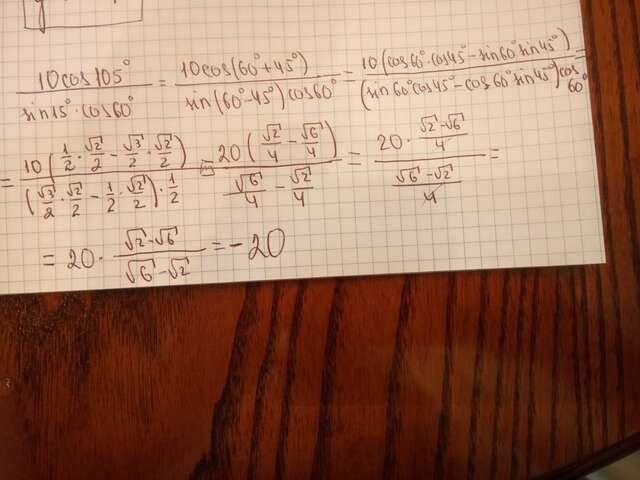 10cos105° / sin15°·cos60° = 10cos(60°+45°) / sin(60°-45°)cos60° = 10(cos60°·cos45°-sin60°sin45°) / (sin60°cos45°-cos60°sin45°)cos60° =
= 10(1/2·√2/2-√3/2·√2/2) / (√3/2·√2/2-1/2·√2/2)·1/2 = 20(√2/4-√6/4) / √6/4-√2/4 = 20·√2-√6/4 / √6-√2/4 =
= 20·√2-√6/√6-√2 = -20